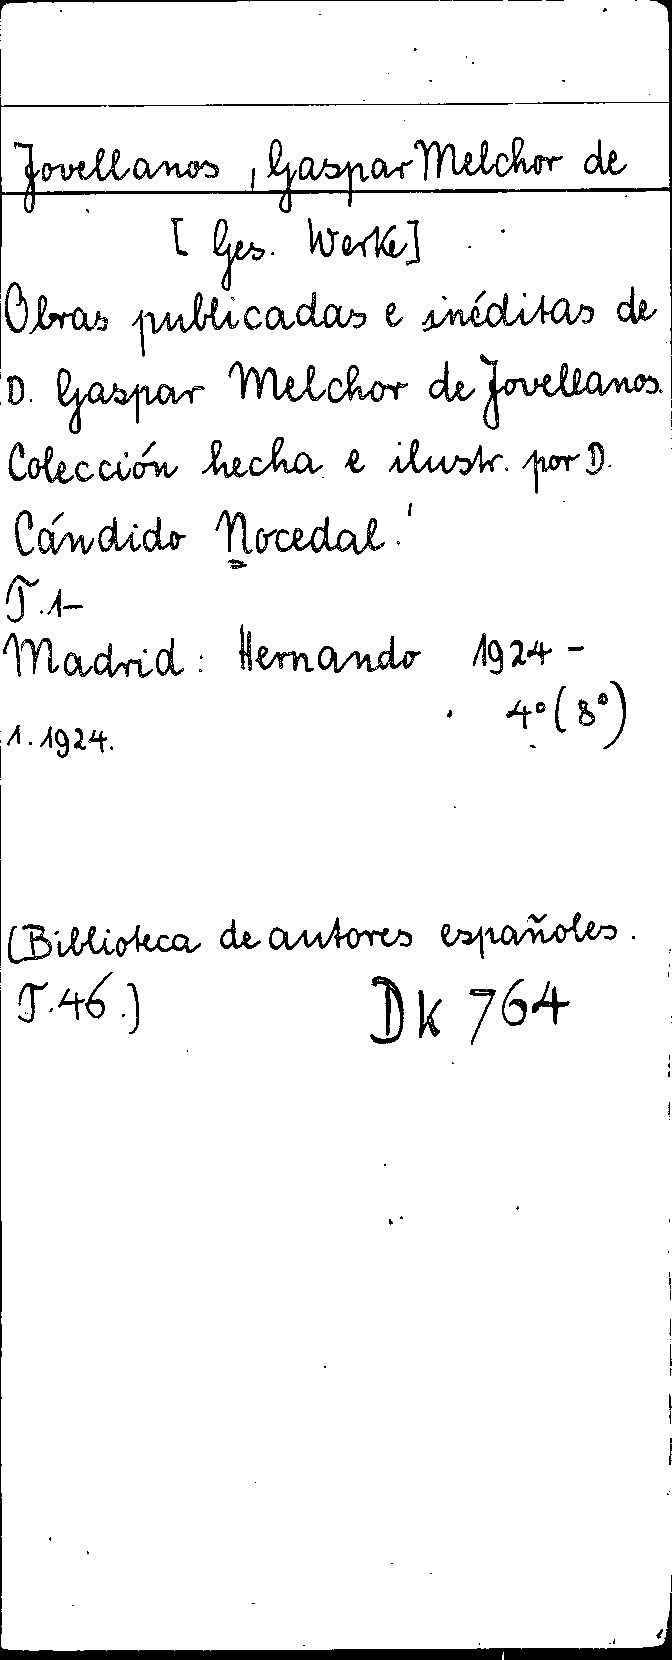 Jovellanos, Gaspar Melchor de
[Ges. Werke]
Obras publicadas e inéditas de
D. Gaspar Melchor de Jovellanos.
Colección hecha e ilustr. por D.
Cándido Nocedal.
T.1-
Madrid: Hernando 1924-
4°(8°)
1.1924.
(Biblioteca de autores españoles.
T.46.) DK 764